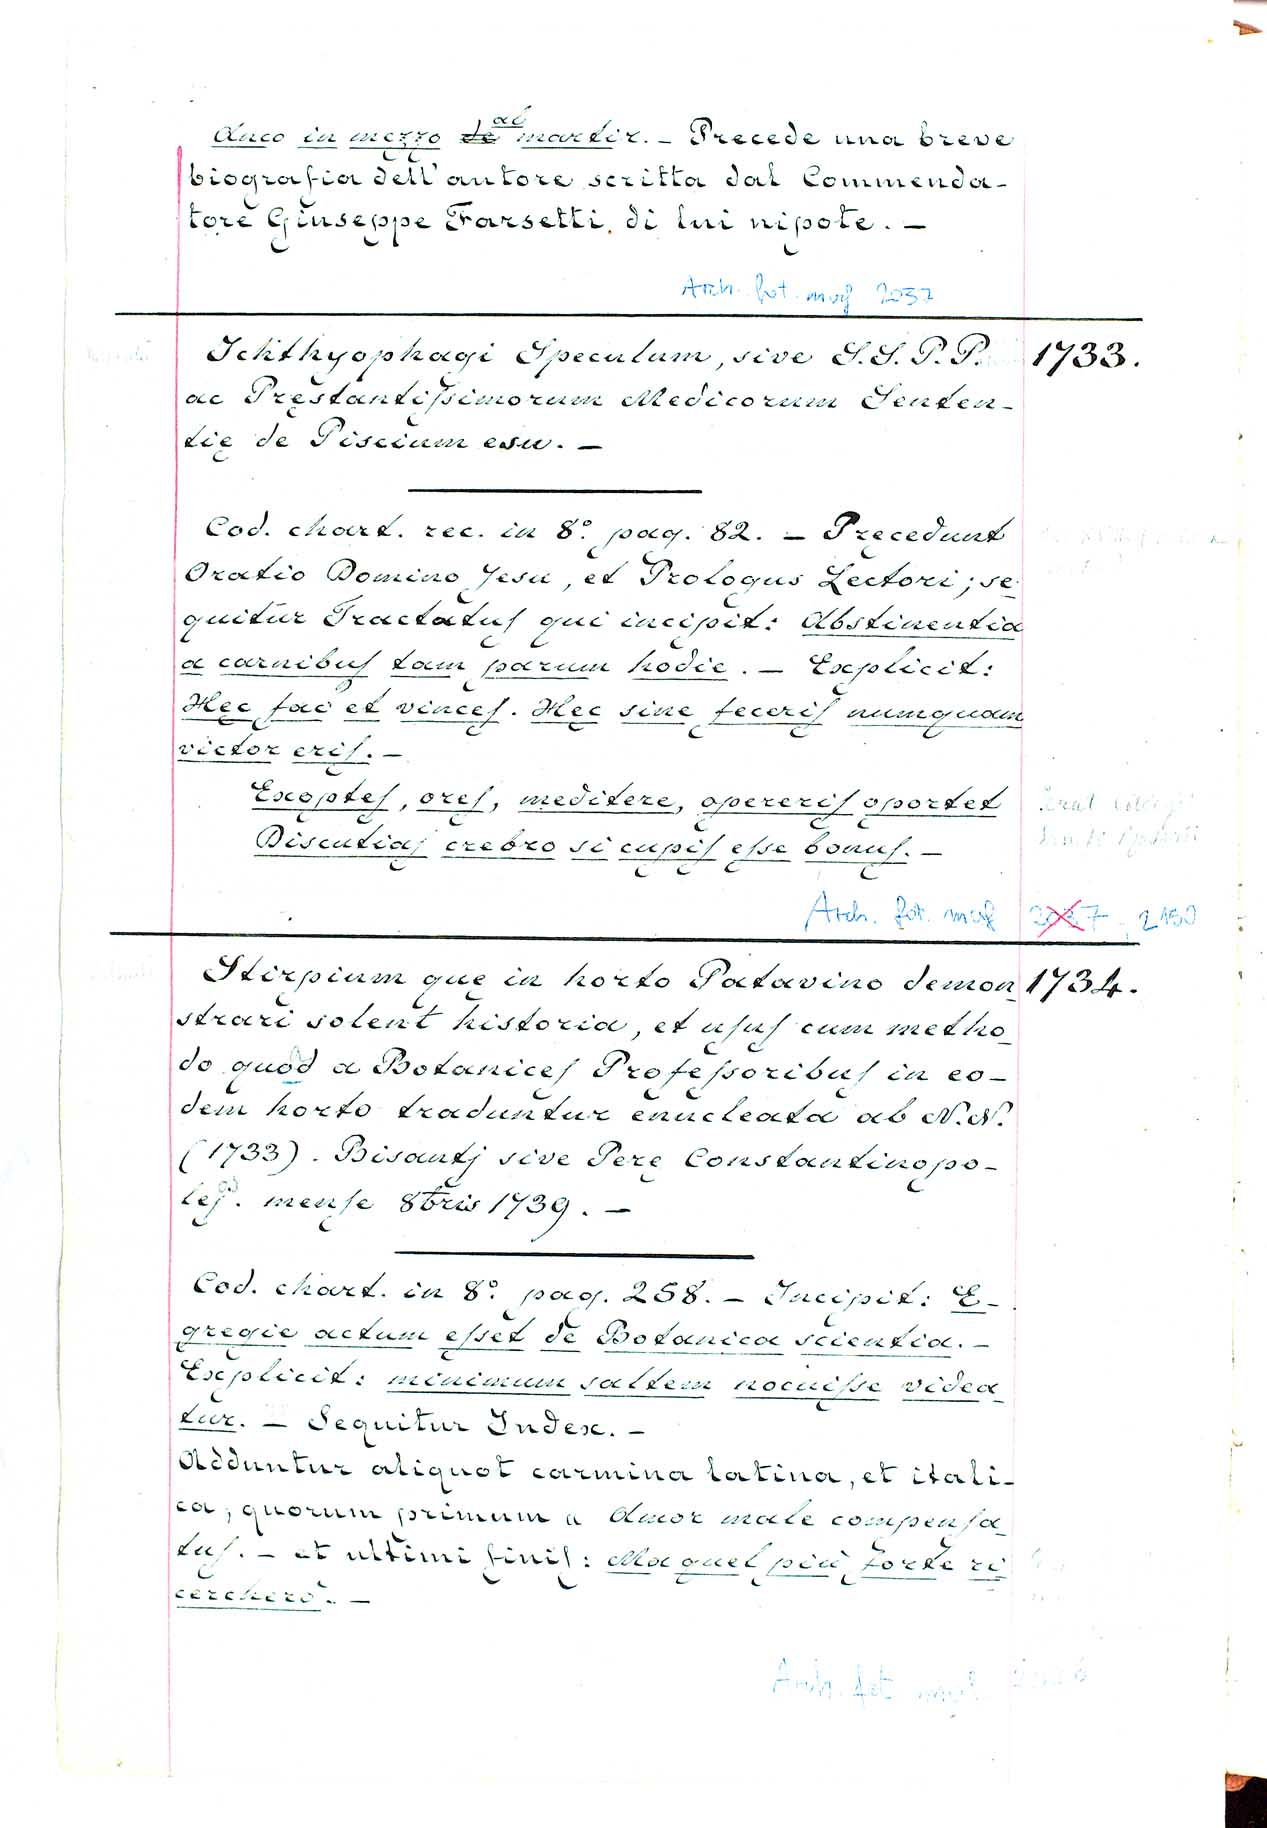 Anco in mezzo de al martir. – Precede una breve
biografia dell'autore scritta dal Commenda-
tore Giuseppe Farsetti di lui nipote. –
Arch. fot. mcf 2037
Ichthyophagi Speculum, sive S.S. P.P. 1733.
ac Pręstantissimorum Medicorum Senten-
tię de Piscium esu. –
Cod. chart. rec. in 8.º pag. 82. – Pręcedunt
Oratio Domino Jesu, et Prologus Lectori; se-
quitur Tractatus qui incipit: Abstinentia
a carnibus tam parum hodie. – Explicit:
Hęc fac et vinces. Hęc sine feceris numquam
victor eris. –
Exoptes, ores, meditere, opereris oportet
Discutias crebro si cupis esse bonus. –
Arch. fot. mcf 2037, 2150
Stirpium quę in horto Patavino demon- 1734.
strari solent historia, et usus cum metho-
do quod a Botanices Professoribus in eo-
dem horto traduntur enucleata ab N.N.
(1733). Bisantj sive Perę Constantinopo-
leos. mense 8bris 1739. –
Cod. chart. in 8.º pag. 258. – Incipit: E-
gregie actum esset de Botanica scientia. –
Explicit: minimum saltem nocuisse videa-
tur. – Sequitur Index. –
Adduntur aliquot carmina latina, et itali-
ca, quorum primum a Amor male compensa-
tus. – et ultimi finis: Ma quel più forte ri-
cercherò. –